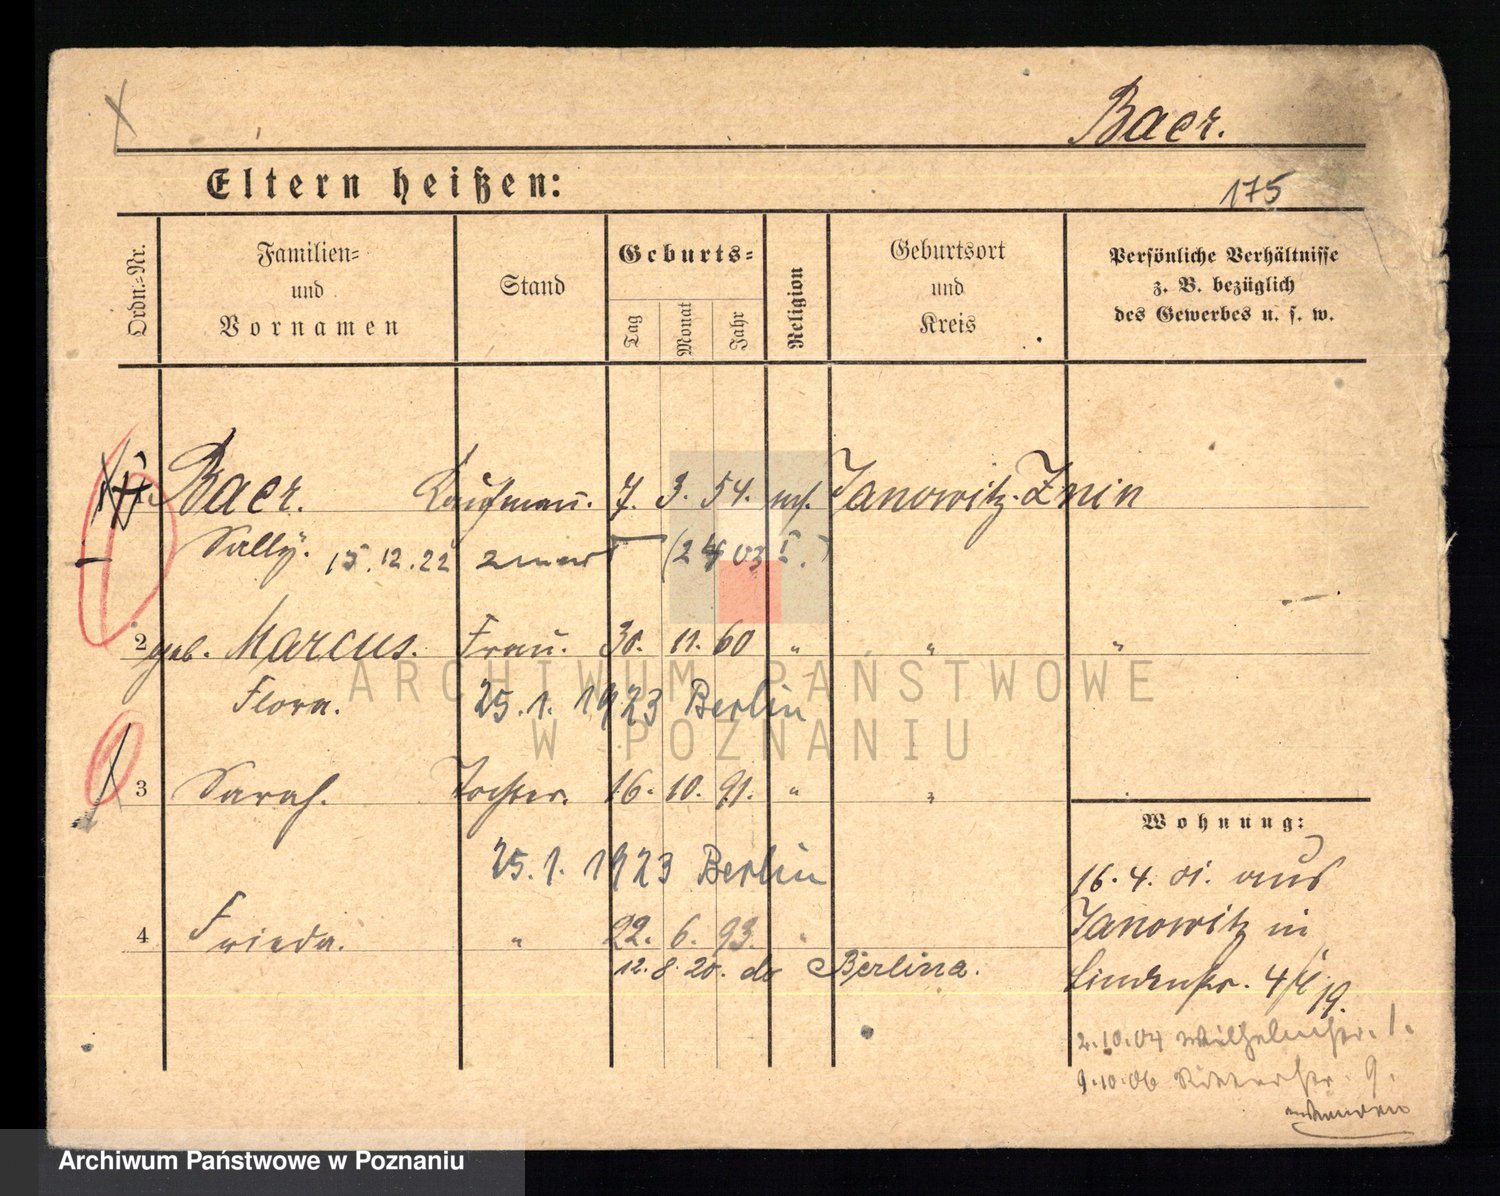 Baer.
Eltern heißen:
175
Ordn.-Nr.
Familien-
und
Vornamen
Stand
Geburts-
Tag
Monat
Jahr
Religion
Geburtsort
und
Kreis
Persönliche Verhältnisse
z. B. bezüglich
des Gewerbes u. s. w.
Baer. Kaufmann. 7. 3. 54. mos. Janowitz. Znin
Sally. 15.12.22 zmarł (2 03 I.)
2 geb. Marcus. Frau. 30. 11. 60 " " "
Flora. 25. 1. 1923 Berlin
3 Sarah. Tochter. 16. 10. 91. " "
25. 1. 1923 Berlin
4 Frieda. " 22. 6. 93. "
12. 8. 20. do Berlina.
Wohnung:
16. 4. 01. aus
Janowitz in
Lindenstr. 4/5
19.
2.10.04 Wilhelmstr. 1.
9.10.06 Ritterstr. 9.
ARCHIWUM PAŃSTWOWE
W POZNANIU
Archiwum Państwowe w Poznaniu